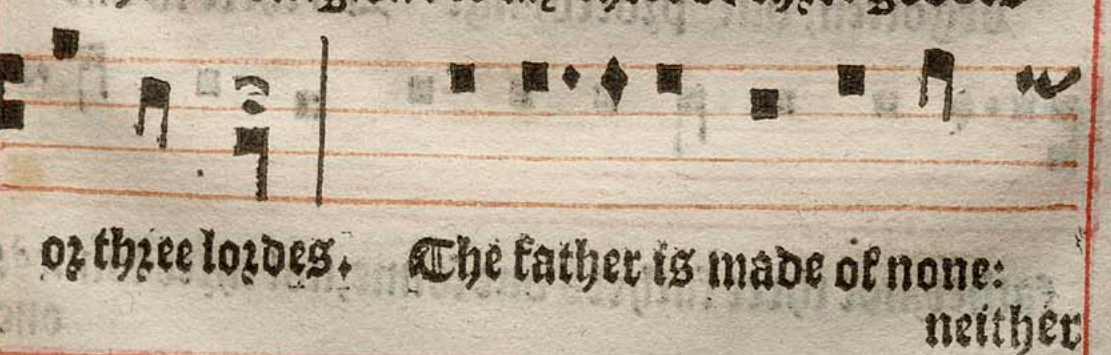 or three lordes. The father is made of none:
neither